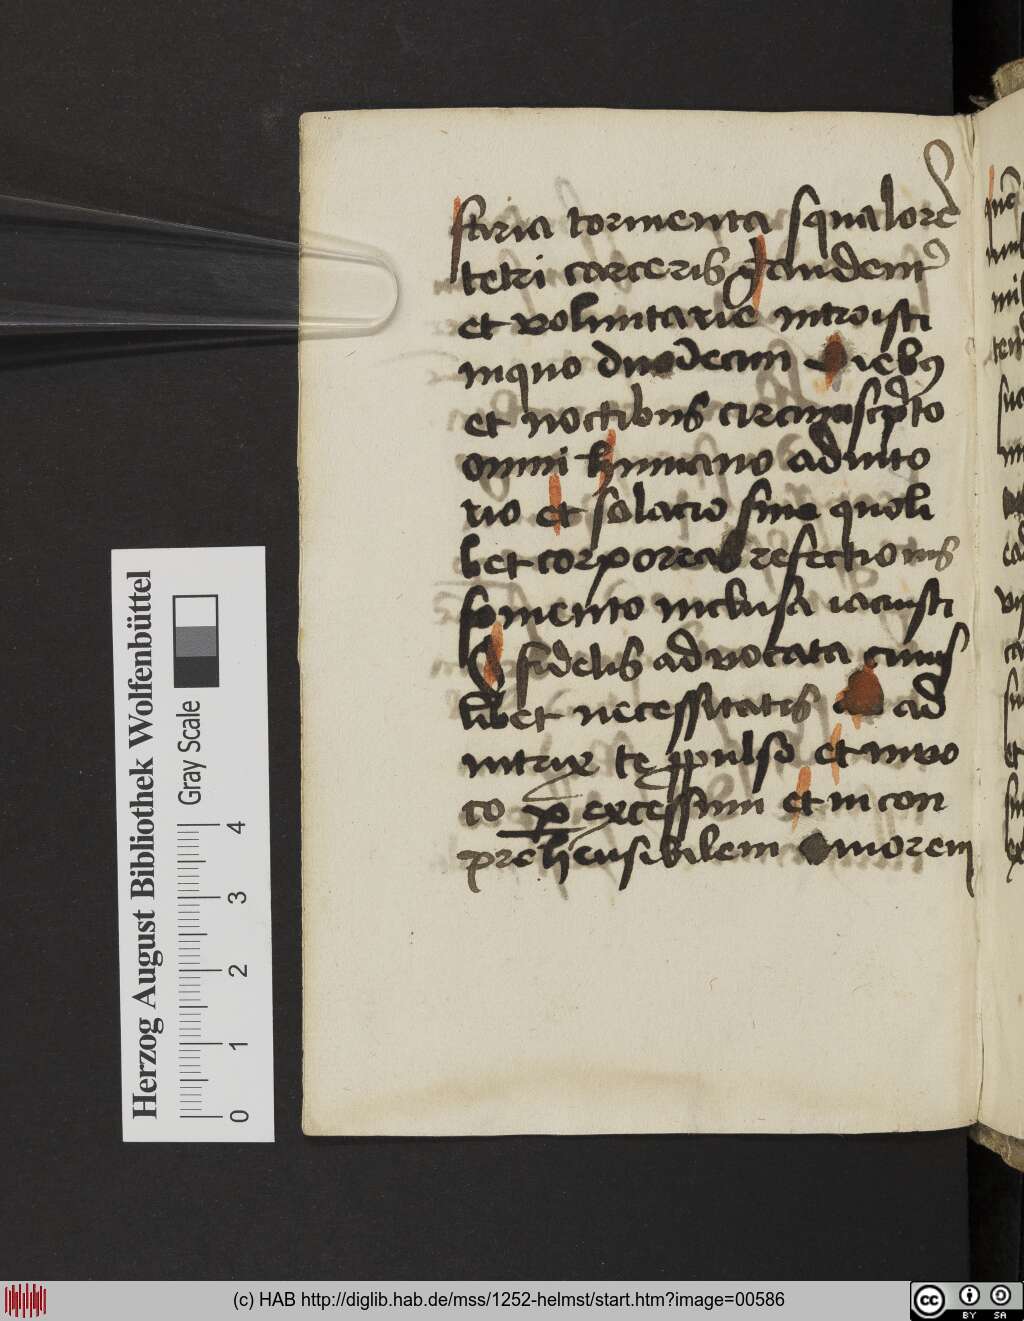 staria tormenta squalorē
tetri carceris gaudent᷑
et voluntarie introisti
inquo duodecim diebꝰ
et noctibus circumscpto
omni humano adiuto
rio et solacio sine quoli
bet corporeas refectionis
fomento inclusa iacuisti
O fidelis advocata cuius
libet necessitatis ad
intrix te ppulso et invo
co ꝑ excessum et incon
prehensibilem Amorem
Herzog August Bibliothek Wolfenbüttel
Gray Scale
0 1 2 3 4
(c) HAB http://diglib.hab.de/mss/1252-helmst/start.htm?image=00586
cc BY SA